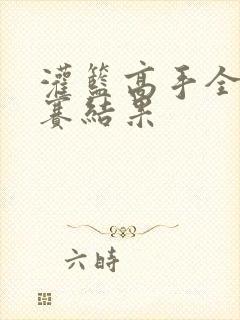 灌籃高手全
賽結果
六時